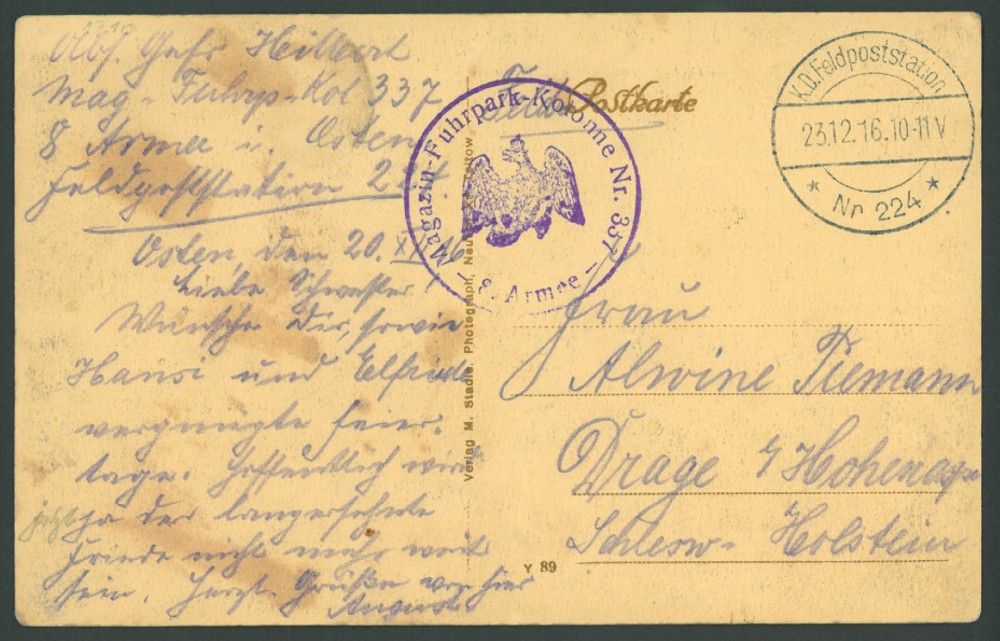 Abs. Gefr. Hilbert
Mag-Fuhrp-Kol 337
8 Armee i. Osten
Feldpoststation 224
Osten, den 20. XII 16
Liebe Schwester!
Wünsche Dir, sowie
Hansi und Elfriede
vergnügte Feier-
tage. Hoffentlich wird
jetzt ja der langersehnte
Friede nicht mehr weit
sein. Herzl. Grüße von hier
August
Verlag M. Stadie, Photograph,
Postkarte
Magazin-Fuhrpark-Kolonne Nr. 337
8. Armee
K.D. Feldpoststation
23.12.16.10-11 V
Nr. 224
Frau
Alwine Tiemann
Drage
Schlesw- Holstein
Y 89